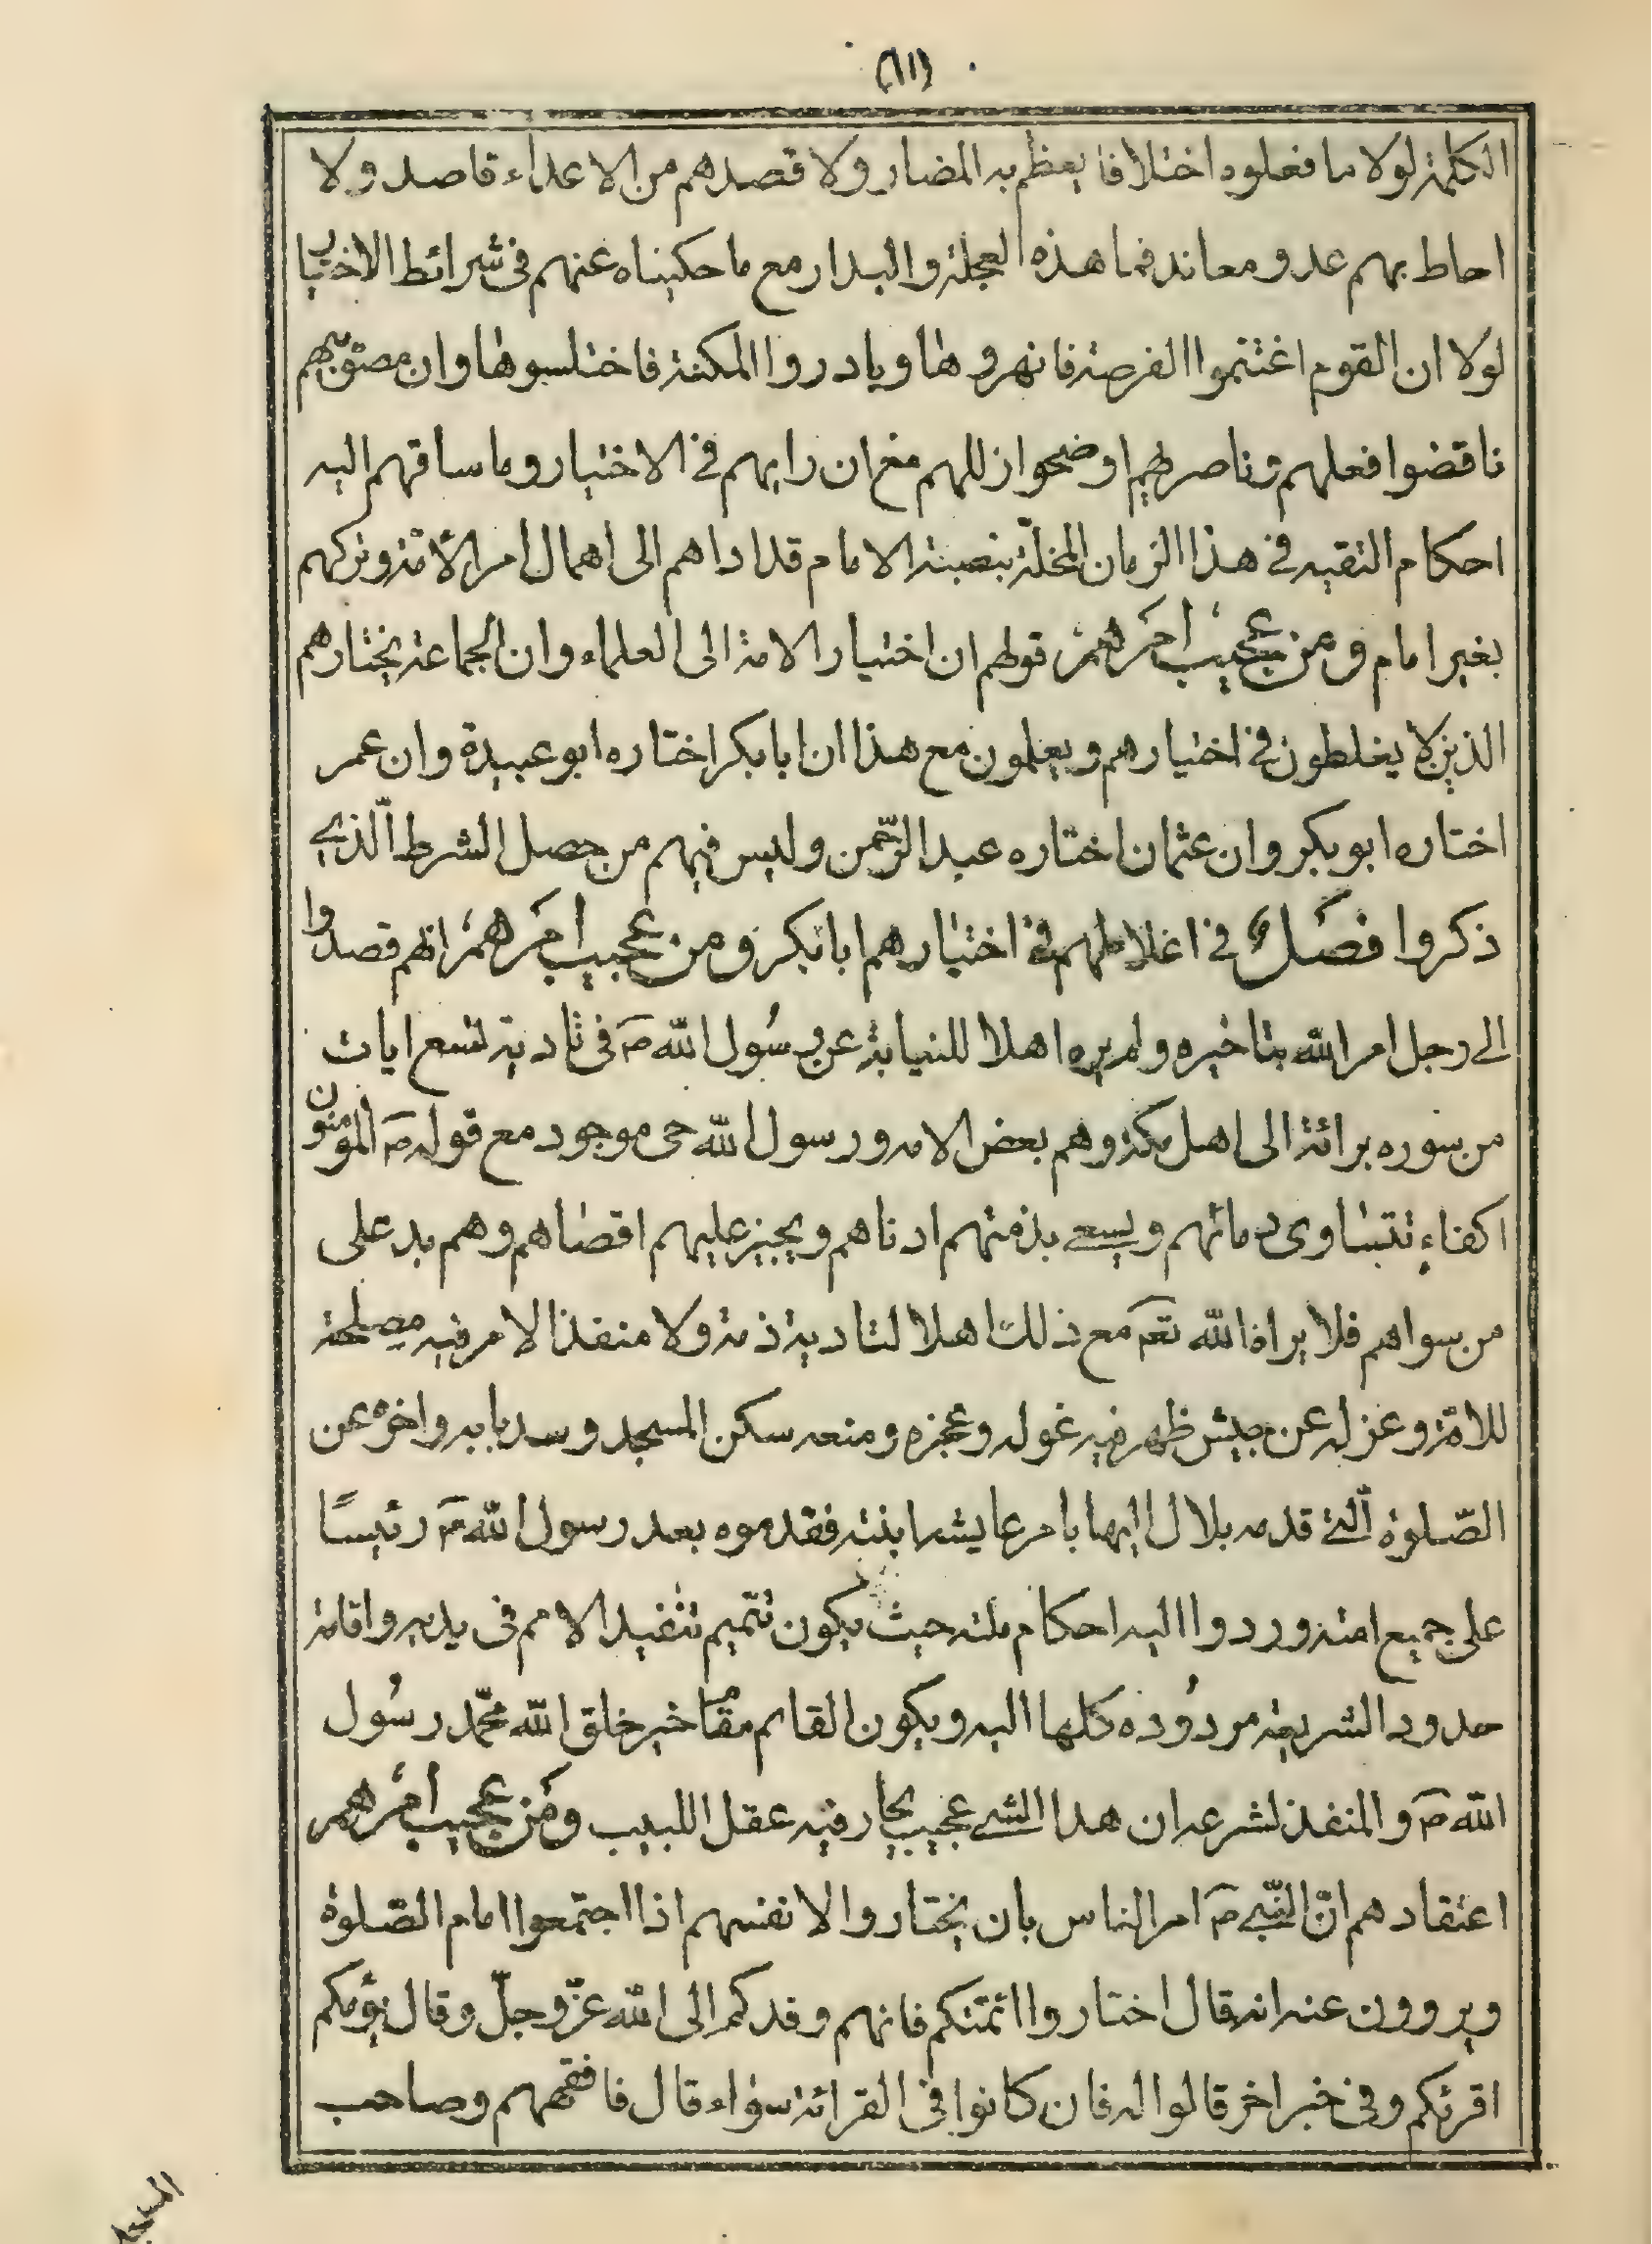 (١١)
الكلمة لولا ما فعلوه اختلافا يعظم به المضار ولا قصدهم من الاعداء قاصد ولا
احاط بهم عدو معاند فما هذه العجلة والبدار مع ما حكيناه عنهم فى شرائط الاختيار
لولا ان القوم اغتنموا الفرصة فانهروها وبادروا المكنة فاختلسوها وان مصوّبيهم
ناقضوا فعلهم وناصريهم اوضحوا زللهم مع ان رايهم فى الاختيار وما ساقهم اليه
احكام التقيه فى هذا الزمان المخلّة بنصبة الامام قد اداهم الى اهمال امر الأمّة وتركهم
بغير امام ومن عجيب امرهم قولهم ان اختيار الامة الى العلماء وان الجماعة يختارهم
الذين لا يغلطون فى اختيارهم ويعلمون مع هذا ان ابا بكر اختاره ابو عبيدة وان عمر
اختاره ابو بكر وان عثمان اختاره عبد الرّحمن وليس فيهم من حصل الشرط الّذى
ذكروا فصل فى اغلاطهم فى اختيارهم ابا بكر ومن عجيب امرهم انهم قصدوا
الى رجل امر الله بتاخيره ولم يره اهلا للنيابة عن رسُول الله ص فى تادية تسع ايات
من سوره برائة الى اهل مكة وهم بعض الامه ورسول الله حى موجود مع قوله ص المؤمنون
اكفاء تتساوى دمائهم ويسعى بذمتهم ادناهم ويجيز عليهم اقصاهم وهم يد على
من سواهم فلا يراه الله تعم مع ذلك اهلا لتادية ذمة ولا منفذا لامر فيه مصلحة
للامّة وعزله عن جيش ظهر فيه غوله وعجزه ومنعه سكن المسجد وسد بابه واخره عن
الصّلوة الّتى قدمه بلال اليها بامر عايشه ابنته فقدموه بعد رسول الله ص رئيسًا
على جميع امته وردوا اليه احكام ملته حيث يكون تتميم تنفيد الامم فى يديه واقامة
حدود الشريعة مردُوده كلها اليه ويكون القائم مقام خير خلق الله محمّد رسُول
الله ص والمنفذ لشرعه ان هدا الشى عجيب يحار فيه عقل اللبيب ومن عجيب أمرهم
اعتقادهم انّ النّبى ص امر الناس بان يختاروا لانفسهم اذا اجتمعوا امام الصّلوة
ويروون عنه انه قال اختاروا ائمتكم فانهم وفدكم الى الله عزّ وجلّ وقال يؤمكم
اقرئكم وفى خبر اخر قالوا له فان كانوا فى القرائة سواء قال فافقههم وصاحب